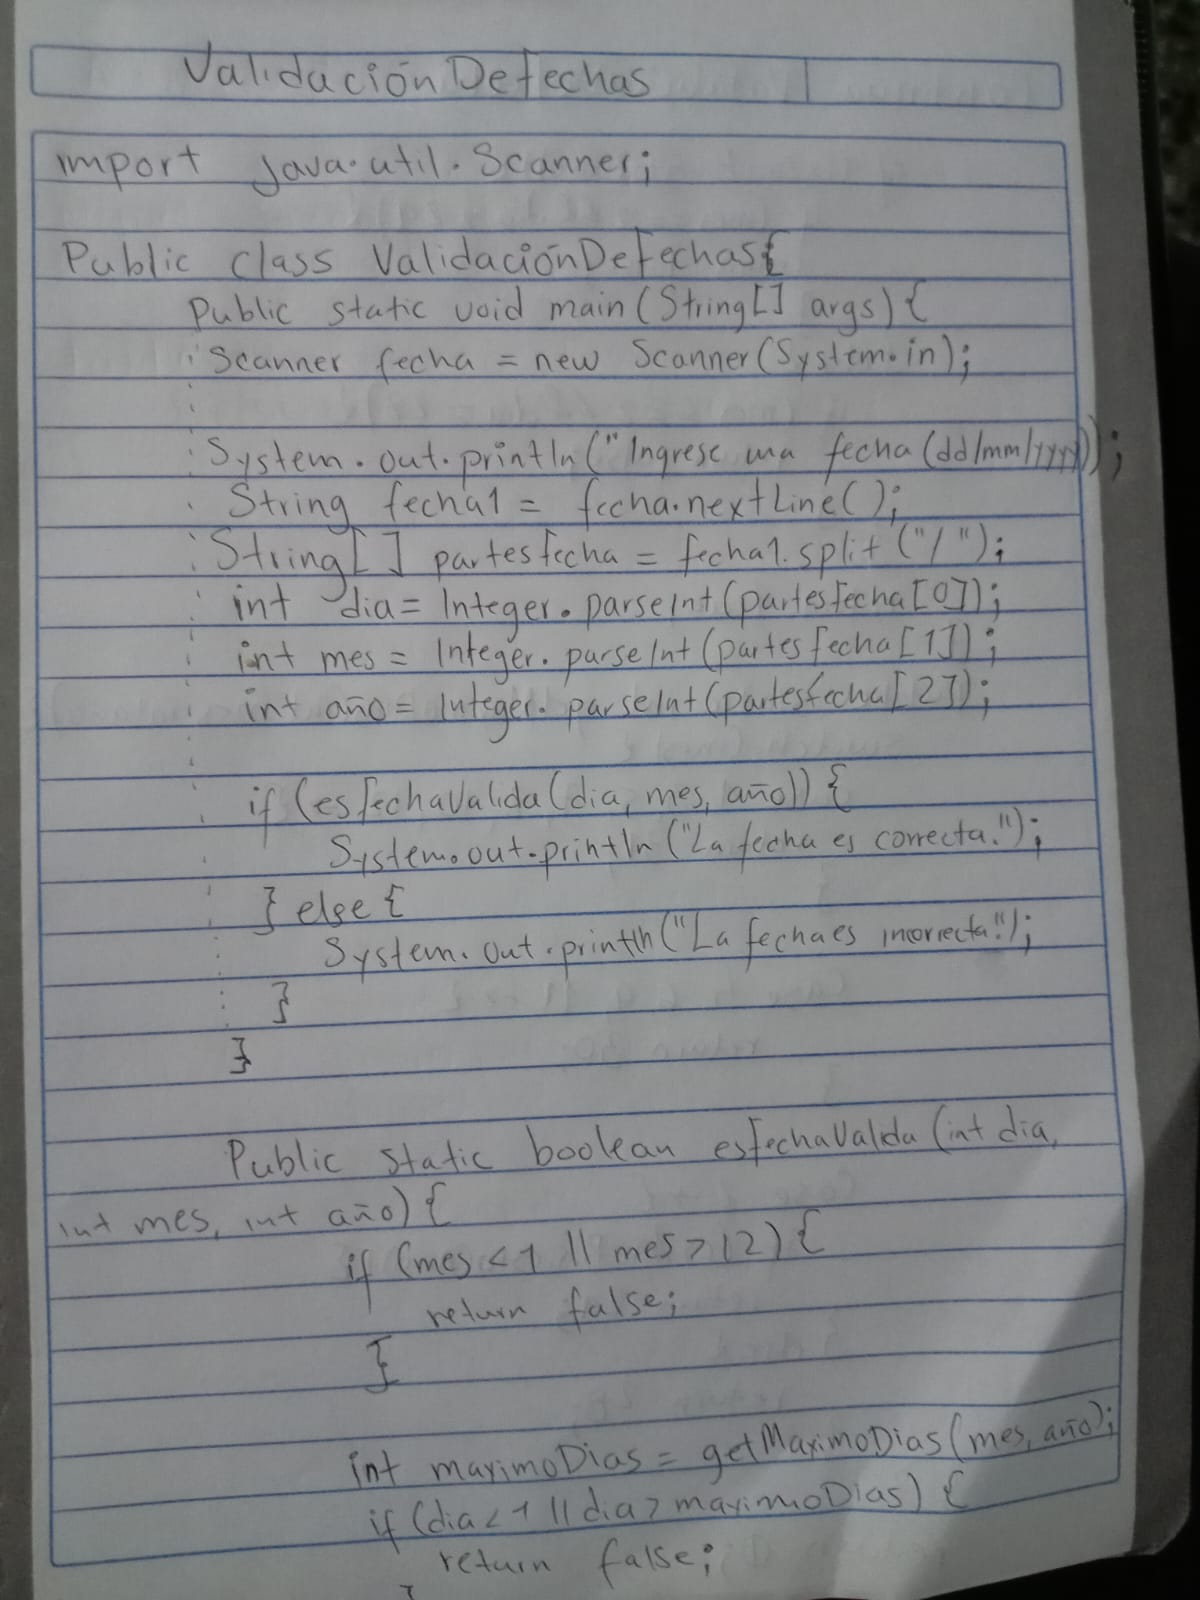 ValidaciónDeFechas
import java.util.Scanner;
Public class ValidaciónDeFechas{
Public static void main (String[] args) {
Scanner fecha = new Scanner(System.in);
System.out.println("Ingrese una fecha (dd/mm/yyyy));
String fecha1 = fecha.nextLine();
String[] partesfecha = fecha1.split("/");
int dia = Integer.parseInt(partesfecha[0]);
int mes = Integer.parseInt(partesfecha[1]);
int año = Integer.parseInt(partesfecha[2]);
if (esfechaValida(dia, mes, año)) {
System.out.println("La fecha es correcta.");
} else {
System.out.println("La fecha es incorrecta.");
}
}
Public static boolean esfechaValida (int dia,
int mes, int año) {
if (mes < 1 || mes > 12) {
return false;
}
int maximoDias = getMaximoDias(mes, año);
if (dia < 1 || dia > maximoDias) {
return false;
}